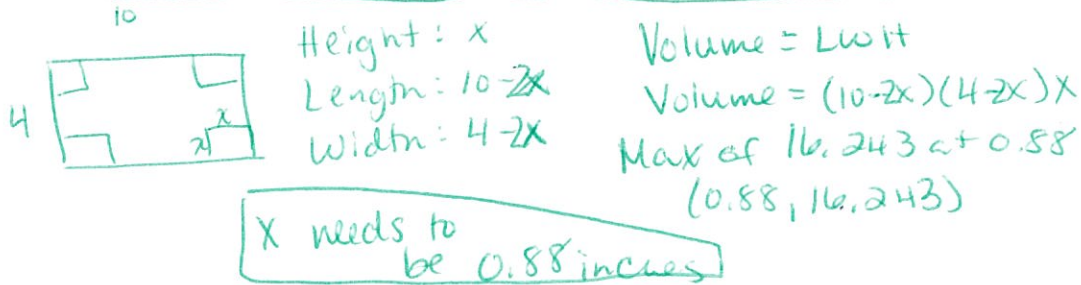 10
4
x
x
Height: x
Length: 10-2x
Width: 4-2x
Volume = LWH
Volume = (10-2x)(4-2x)x
Max of 16.243 at 0.88
(0.88, 16.243)
X needs to
be 0.88 inches